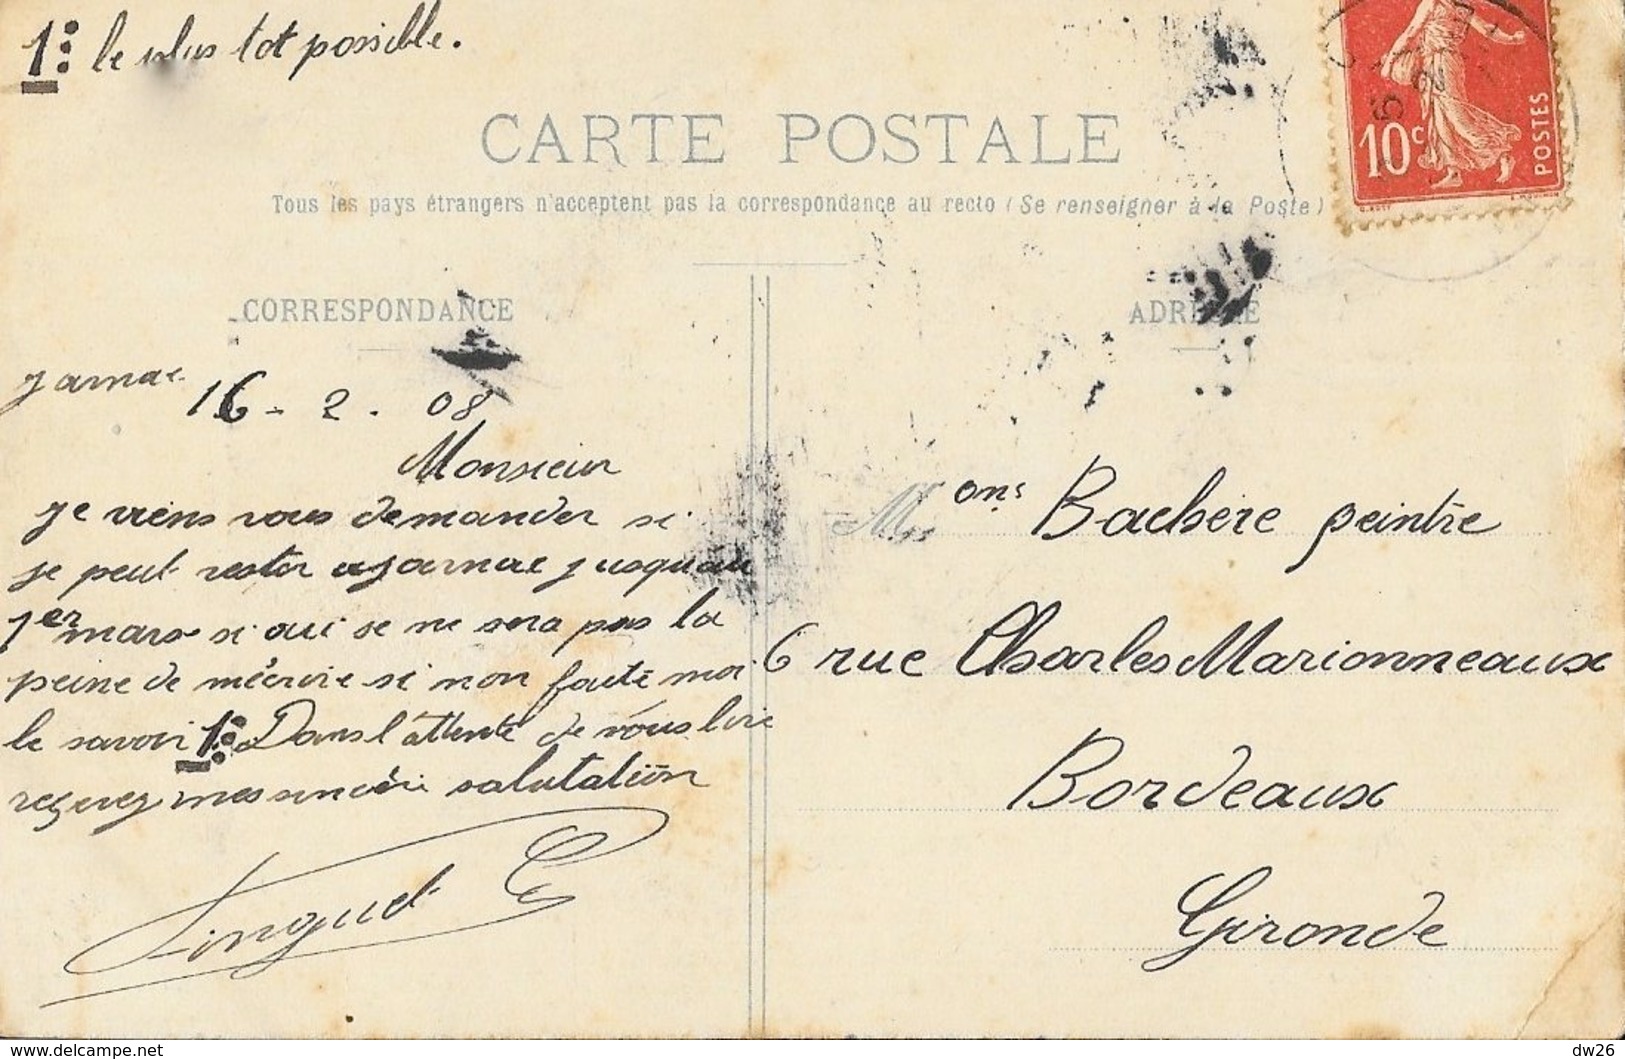 1: le plus tot possible.
10c POSTES
CARTE POSTALE
Tous les pays étrangers n'acceptent pas la correspondance au recto (Se renseigner à la Poste)
CORRESPONDANCE
jarnac 16 - 2 . 08
Monsieur
je viens vous demander si
je peut rester a jarnac jusquau
1er mars si oui se ne sera pas la
peine de mécrire si non faite moi
le savoir 1: Dans l'attente de vous lire
reçevez mes sincère salutation
ADRESSE
Mons Bachere peintre
6 rue Charles Marionneaux
Bordeaux
Gironde
www.delcampe.net
dw26